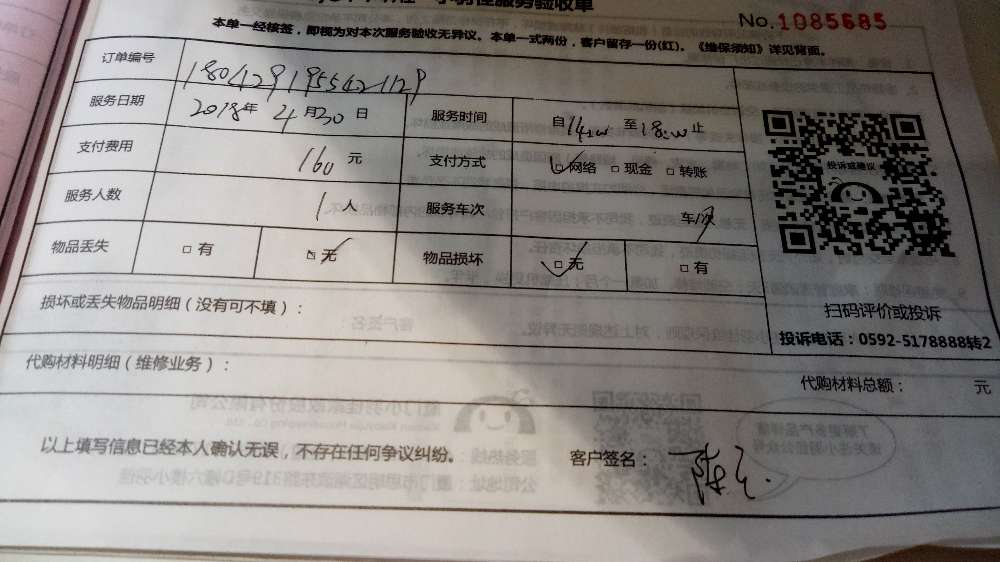 小羽佳服务验收单
No.1085685
本单一经核签，即视为对本次服务验收无异议。本单一式两份，客户留存一份(红)。《维保须知》详见背面。
订单编号
服务日期 2018年4月30日 服务时间 自14:00至18:00止
支付费用 160元 支付方式 □网络 □现金 □转账
服务人数 1人 服务车次 车/次
物品丢失 □有 □无 物品损坏 □无 □有
投诉或建议
扫码评价或投诉
投诉电话：0592-5178888转2
损坏或丢失物品明细（没有可不填）：
代购材料明细（维修业务）：
代购材料总额： 元
以上填写信息已经本人确认无误，不存在任何争议纠纷。 客户签名：